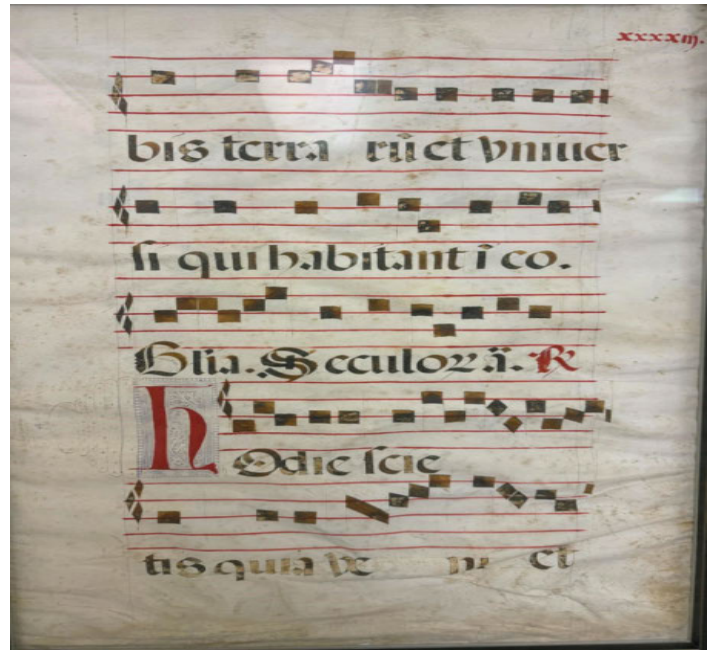 xxxxiij.
bis terra rũ et vniuer
si qui habitant ĩ co.
Glia. Seculoꝝ ã. R
hOdie scie
tis quia ve et